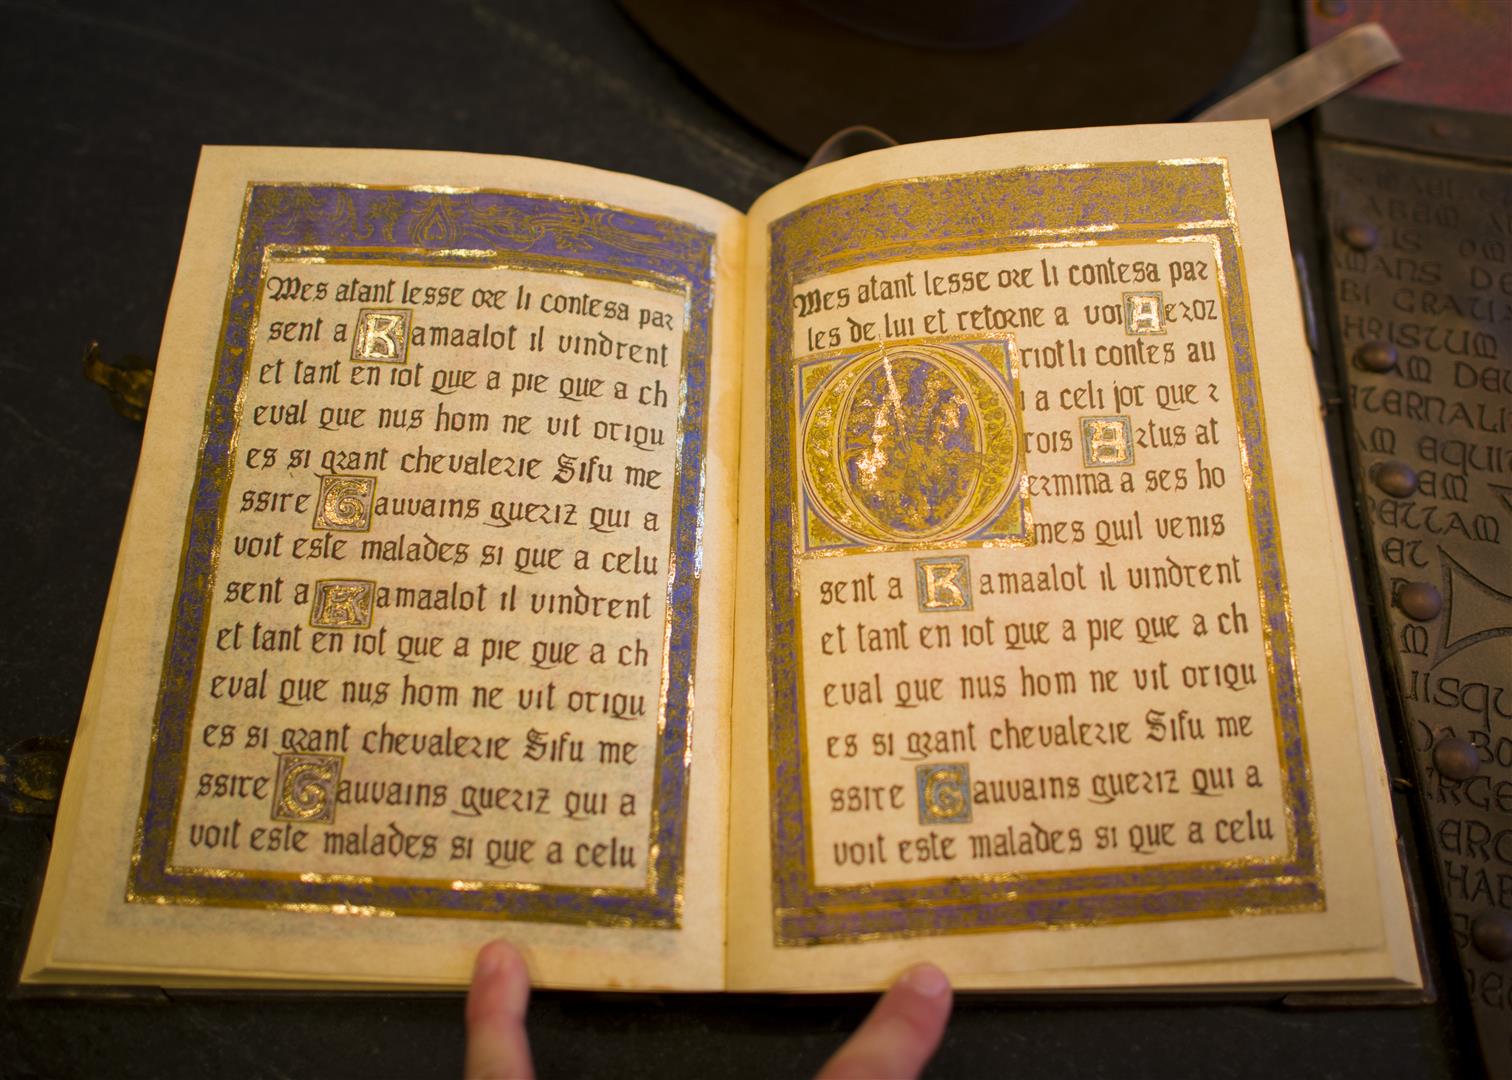 Mes atant lesse ore li contesa par
sent a Kamaalot il vindrent
et tant en iot que a pie que a ch
eval que nus hom ne vit oriqu
es si grant chevalerie Sifu me
ssire Gauvains gueriz qui a
voit este malades si que a celu
sent a Kamaalot il vindrent
et tant en iot que a pie que a ch
eval que nus hom ne vit oriqu
es si grant chevalerie Sifu me
ssire Gauvains gueriz qui a
voit este malades si que a celu
Mes atant lesse ore li contesa par
les de lui et retorne a voi Aeroz
O riotli contes au
i a celi jor que r
rois Artus at
ermina a ses ho
mes quil venis
sent a Kamaalot il vindrent
et tant en iot que a pie que a ch
eval que nus hom ne vit oriqu
es si grant chevalerie Sifu me
ssire Gauvains gueriz qui a
voit este malades si que a celu
IS OM
MANS DE
BI GRATI
HRISTUM
AM DEU
ETERNALI
AM EQUIT
EM
ET
M
IISQU
DABO